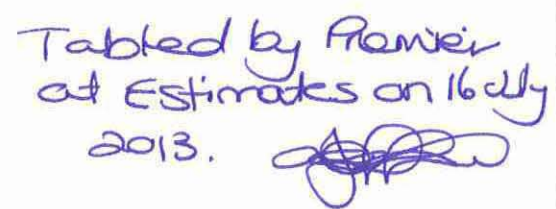 Tabled by Premier
at Estimates on 16 July
2013.